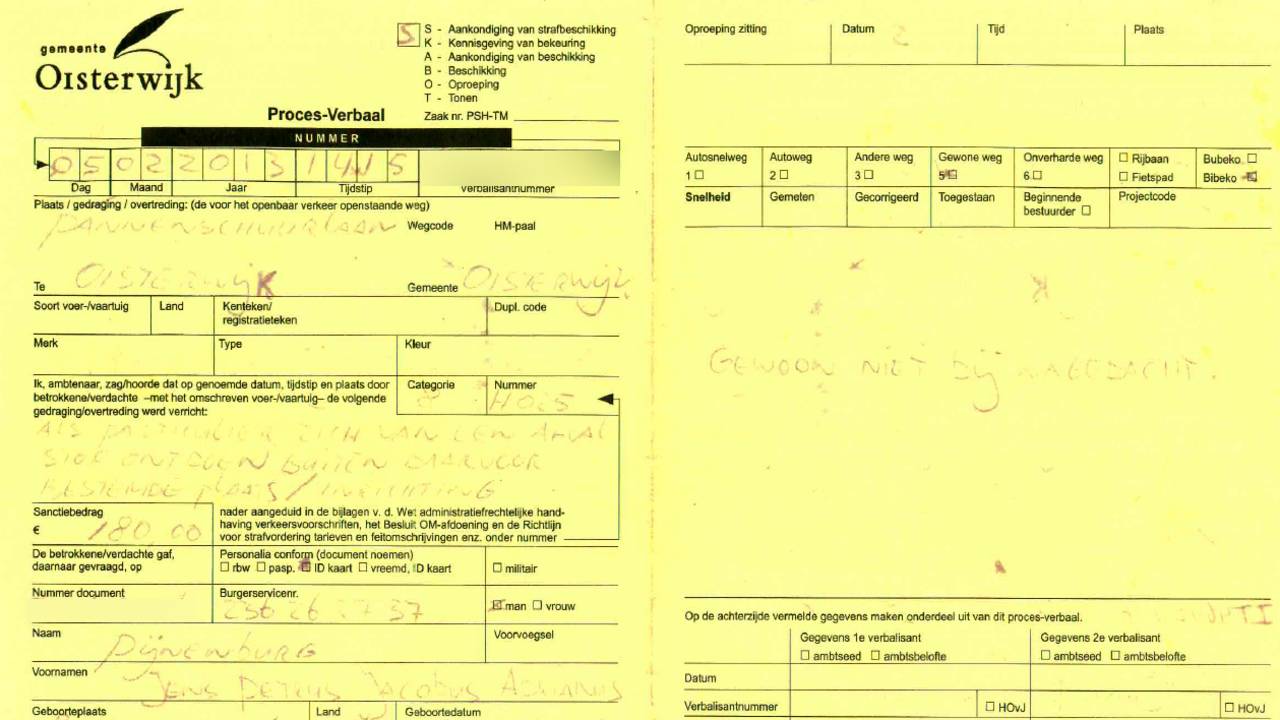 gemeente
Oisterwijk
S S - Aankondiging van strafbeschikking
K - Kennisgeving van bekeuring
A - Aankondiging van beschikking
B - Beschikking
O - Oproeping
T - Tonen
Proces-Verbaal
Zaak nr. PSH-TM
NUMMER
05 02 2013 14 15
Dag Maand Jaar Tijdstip verbalisantnummer
Plaats / gedraging / overtreding: (de voor het openbaar verkeer openstaande weg)
PANNENSCHUURLAAN Wegcode HM-paal
Te OISTERWIJK Gemeente OISTERWIJK
Soort voer-/vaartuig Land Kenteken/ Dupl. code
registratieteken
Merk Type Kleur
Ik, ambtenaar, zag/hoorde dat op genoemde datum, tijdstip en plaats door Categorie Nummer
betrokkene/verdachte –met het omschreven voer-/vaartuig– de volgende 8 H025
gedraging/overtreding werd verricht:
ALS PARTICULIER ZICH VAN EEN AFVAL
STOF ONTDOEN BUITEN DAARVOOR
BESTEMDE PLAATS / INRICHTING
Sanctiebedrag nader aangeduid in de bijlagen v. d. Wet administratiefrechtelijke hand-
€ 180,00 having verkeersvoorschriften, het Besluit OM-afdoening en de Richtlijn
voor strafvordering tarieven en feitomschrijvingen enz. onder nummer
De betrokkene/verdachte gaf, Personalia conform (document noemen)
daarnaar gevraagd, op rbw pasp. ID kaart vreemd, ID kaart militair
Nummer document Burgerservicenr.
man vrouw
Naam Voorvoegsel
Pijnenburg
Voornamen
JENS PETRUS JACOBUS ADRIANUS
Geboorteplaats Land Geboortedatum
Oproeping zitting Datum Tijd Plaats
Autosnelweg Autoweg Andere weg Gewone weg Onverharde weg Rijbaan Bubeko
1 2 3 5 6 Fietspad Bibeko
Snelheid Gemeten Gecorrigeerd Toegestaan Beginnende Projectcode
bestuurder
GEWOON NIET bij NAGEDACHT.
Op de achterzijde vermelde gegevens maken onderdeel uit van dit proces-verbaal.
Gegevens 1e verbalisant Gegevens 2e verbalisant
ambtseed ambtsbelofte ambtseed ambtsbelofte
Datum
Verbalisantnummer HOvJ HOvJ